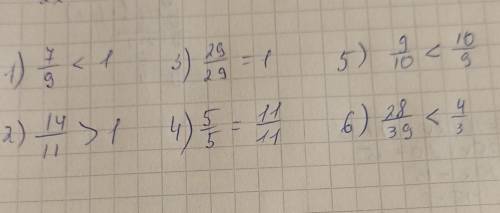 1) 7/9 < 1   3) 29/29 = 1   5) 9/10 < 10/9
2) 14/11 > 1   4) 5/5 = 11/11   6) 28/39 < 4/3